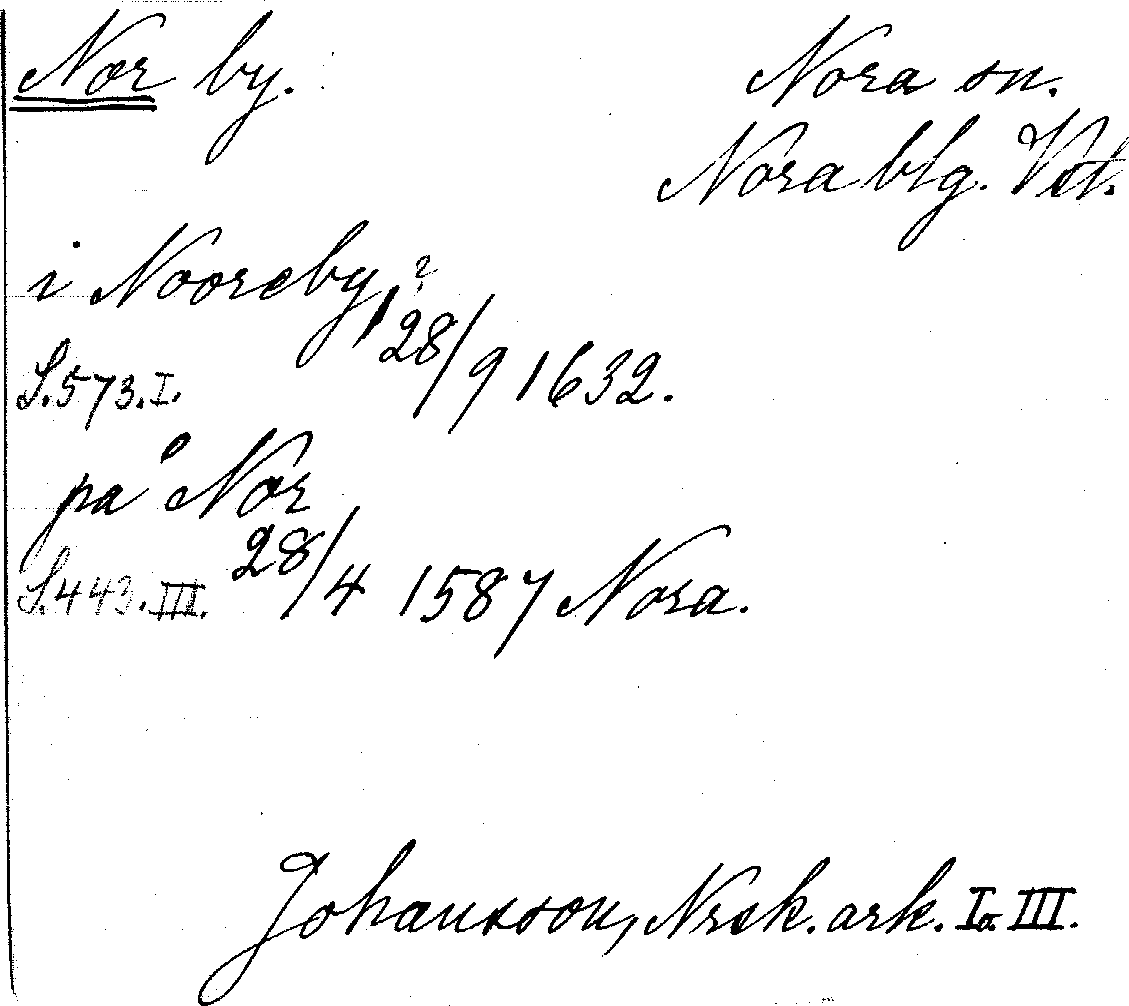 Nor by.
Nora sn.
Nora blg. Vstl.
i Nooreby, ?
28/9 1632.
S. 573. I.
på Nor
28/4 1587 Nora.
S. 443. III.
Johansson, Nrsk. ark. I o. III.